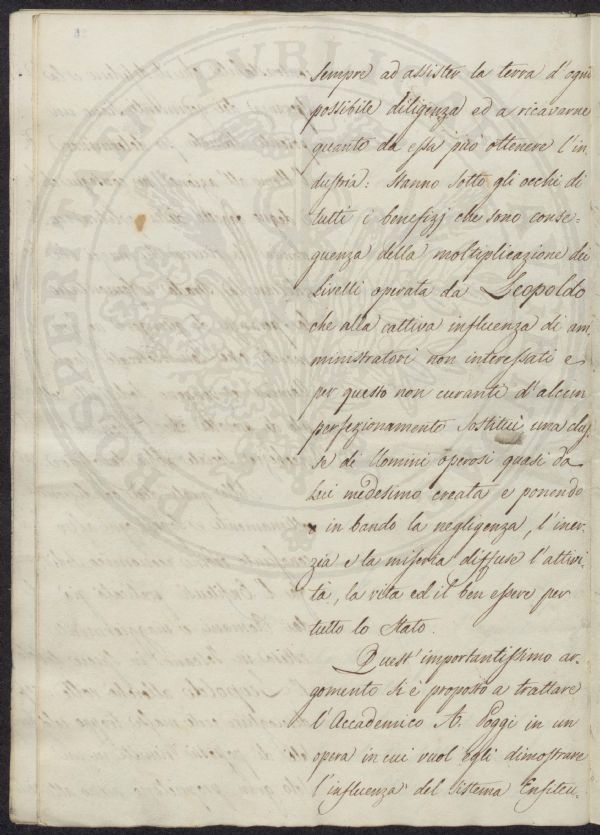 sempre ad assister la terra d'ogni
possibile diligenza ed a ricavarne
quanto da essa può ottenere l'in
dustria: Hanno sotto gli occhi di
tutti i benefizj che sono conse=
guenza della moltiplicazione dei
Livelli operata da Leopoldo
che alla cattiva influenza di am
ministratori non interessati e
per questo non curanti d'alcun
perfezionamento sostituì una clas
se di Uomini operosi quasi da
Lui medesimo creata e ponendo
in bando la negligenza, l'iner=
zia e la miseria diffuse l'attivi
tà, la vita ed il ben essere per
tutto lo Stato.
Quest'importantissimo ar
gomento si è proposto a trattare
l'Accademico A. Poggi in un
opera in cui vuol egli dimostrare
l'influenza del Sistema Enfiteu=